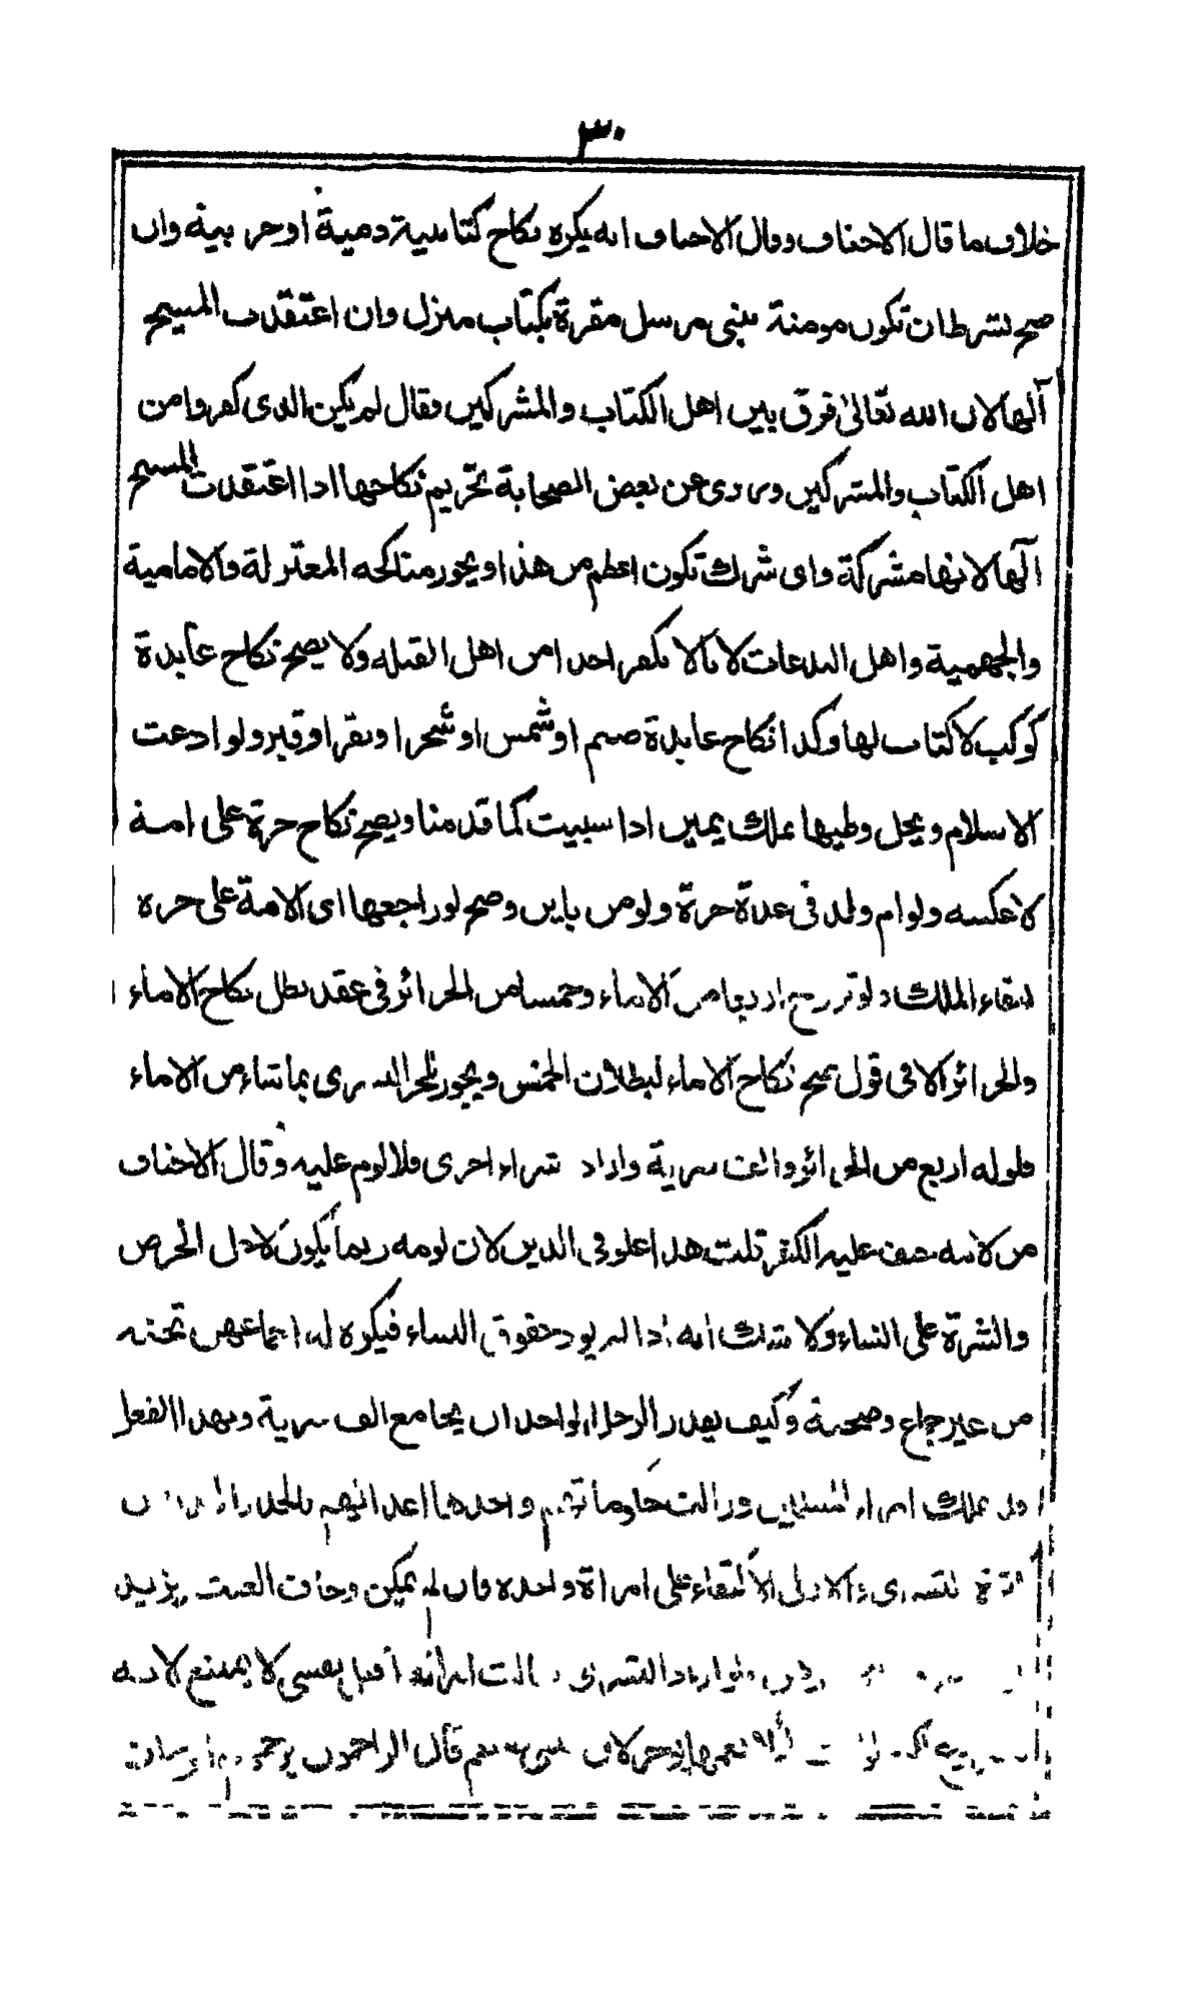 ٣٠
خلاف ما قال الاحناف وقال الاحناف انه يكره نكاح كتابية ذمية او حربية وان
صح بشرط ان تكون مومنة بنبى مرسل مقرة بكتاب منزل وان اعتقدت المسيح
آلها لان الله تعالىٰ فرق بين اهل الكتاب والمشركين وقال لم يكن الذى كفروا من
اهل الكتاب والمشركين وروى عن بعض الصحابة تحريم نكاحها اذا اعتقدت المسيح
آلها لانها مشركة واى شرك تكون اعظم من هذا ويجوز مناكحه المعتزلة والامامية
والجهمية واهل البدعات لانا لا نكفر احدا من اهل القبله ولا يصح نكاح عابدة
كوكب لا كتاب لها وكذا نكاح عابدة صنم او شمس او شجر او بقر او قبر ولو ادعت
الاسلام ويحل وطيها بملك يمين اذا سبيت كما قدمنا ويصح نكاح حرة على امة
لا عكسه ولو ام ولد فى عدة حرة ولو من باين وصح لو راجعها اى الامة على حره
لبقاء الملك ولو تزوج اربعا من الاماء وخمسا من الحرائر فى عقد بطل نكاح الاماء
والحرائر الا فى قول يصح نكاح الاماء لبطلان الخمس ويجوز للحر التسرى بما شاء من الاماء
فلو له اربع من الحرائر والف سرية واراد شراء اخرى فلا لوم عليه وقال الاحناف
من لامه خيف عليه الكفر قلت هذا غلو فى الدين لان لومه ربما يكون لاجل الحرص
والشرة على النساء ولا شك انه اذا لم يود حقوق النساء فيكره له اجماعهن تحته
من غير جماع وصحبة وكيف يقدر الرجل الواحد ان يجامع الف سرية وبهذا الفعل
امراء المسلمين وزالت واحدها اعدائهم
التسرى والاولى الاكتفاء على امراة واحده فان لم يمكن وخاف العنت يزيد
ولو اراد التسرى قالت امراته اقتل نفسى لا يمتنع لانه
قال الراحمون يرحمهم